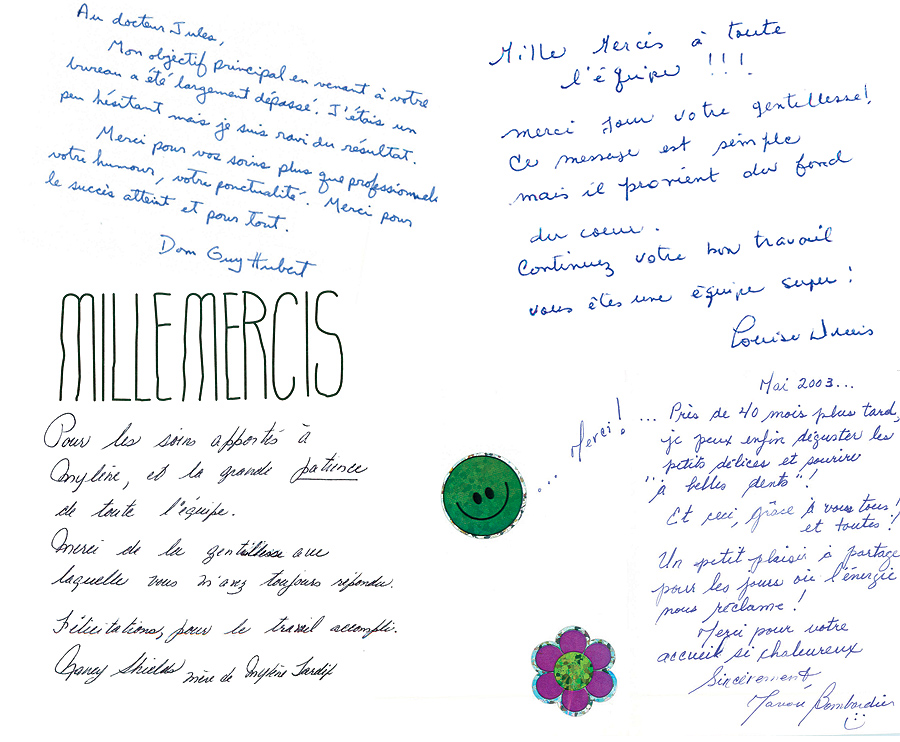 Au docteur Jules,
Mon objectif principal en venant à votre
bureau a été largement dépassé. J'étais un
peu hésitant mais je suis ravi du résultat.
Merci pour vos soins plus que professionnels
votre humour, votre ponctualité. Merci pour
le succès atteint et pour tout.
Dom Guy Hubert
Mille Mercis à toute
l'équipe !!!
merci pour votre gentillesse!
Ce message est simple
mais il provient du fond
du coeur.
Continuez votre bon travail
vous êtes une équipe super!
Louise
MILLE MERCIS
Pour les soins apportés à
Mylène, et la grande patience
de toute l'équipe.
Merci de la gentillesse avec
laquelle vous m'avez toujours répondu.
Félicitations, pour le travail accompli.
Nancy Shields mère de Mylène Tardif
... Merci!
Mai 2003...
... Près de 40 mois plus tard,
je peux enfin déguster les
petits délices et sourire
"à belles dents"!
Et ceci, grâce à vous tous!
et toutes!
Un petit plaisir à partager
pour les jours où l'énergie
nous réclame!
Merci pour votre
accueil si chaleureux
Sincèrement
Bombardier